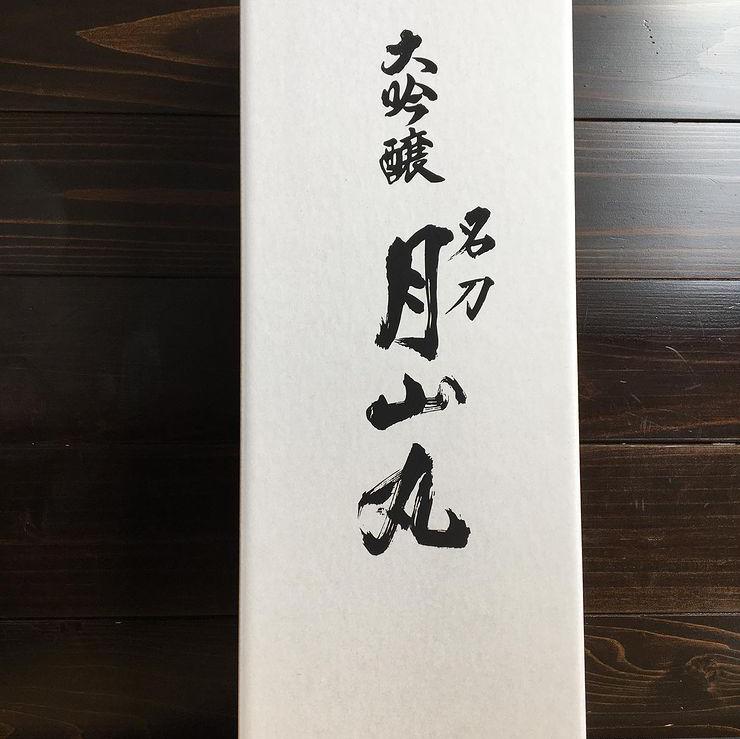 大吟醸
名刀
月山丸